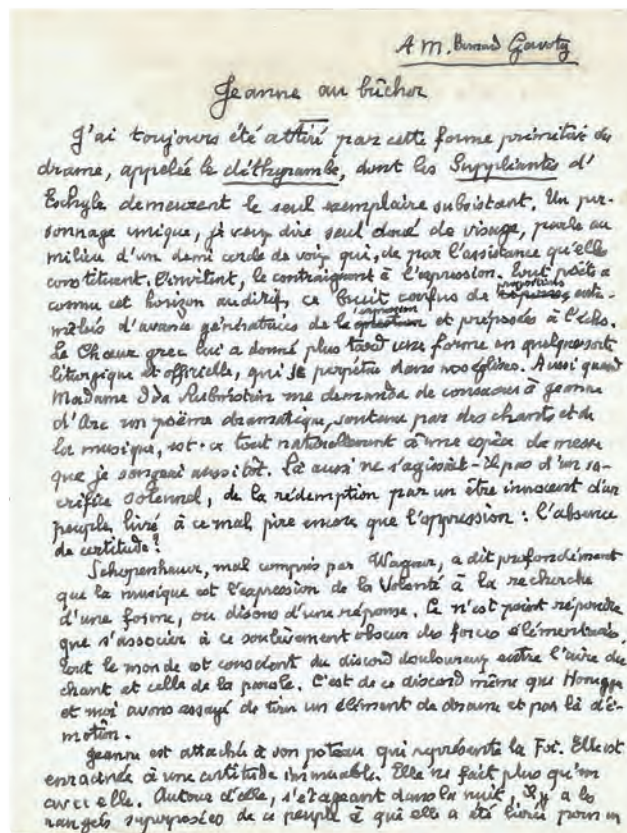 A M. Bernard Gavoty
Jeanne au bûcher
J'ai toujours été attiré par cette forme primitive du
drame, appelée le dithyrambe, dont les Suppliantes d'
Eschyle demeurent le seul exemplaire subsistant. Un per-
sonnage unique, je veux dire seul doué de visage, parle au
milieu d'un demi cercle de voix qui, de par l'assistance qu'elles
constituent, l'invitent, le contraignent à l'expression. Tout poète a
connu cet horizon auditif, ce bruit confus de propositions entre-
mêlés d'avance génératrices de l'expression et préposées à l'écho.
Le Chœur grec lui a donné plus tard une forme en quelque sorte
liturgique et officielle, qui se perpétue dans nos églises. Aussi quand
Madame Ida Rubinstein me demanda de consacrer à Jeanne
d'Arc un poème dramatique, soutenu par des chants et de
la musique, est-ce tout naturellement à une espèce de messe
que je songeai aussitôt. Là aussi ne s'agissait-il pas d'un sa-
crifice solennel, de la rédemption par un être innocent d'un
peuple livré à ce mal, pire encore que l'oppression : l'absence
de certitude?
Schopenhauer, mal compris par Wagner, a dit profondément
que la musique est l'expression de la Volonté à la recherche
d'une forme, ou disons d'une réponse. Ce n'est point répondre
que s'associer à ce soulèvement obscur des forces élémentaires.
Tout le monde est conscient du discord douloureux entre l'aire du
chant et celle de la parole. C'est de ce discord même que Honegger
et moi avons essayé de tirer un élément de drame et par là d'é-
motion.
Jeanne est attachée à son poteau qui représente la Foi. Elle est
enracinée à une certitude immuable. Elle ne fait plus qu'un
avec elle. Autour d'elle, s'étageant dans la nuit, il y a les
rangées superposées de ce peuple à qui elle a été livrée pour un